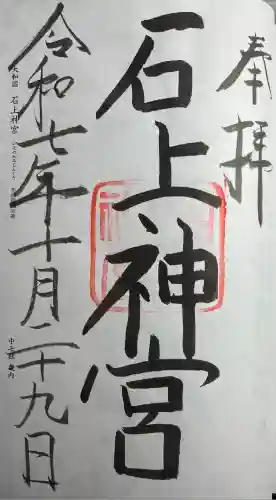 奉拝
石上神宮
令和七年十月二十九日
大和國 石上神宮